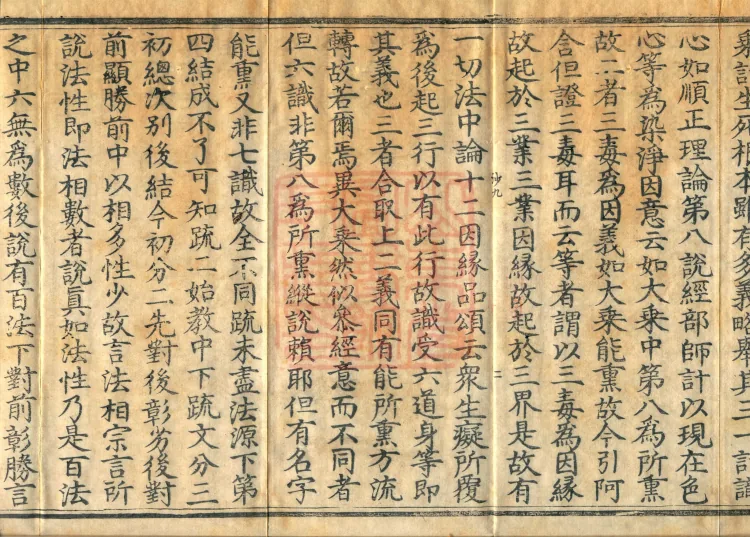 乘説生死根本雖有多義略舉其二一計識
心如順正理論第八說經部師計以現在色
心等為染淨因意云如大乘中第八為所熏
故二者三毒為因義如大乘能熏故今引阿
含但證三毒耳而云等者謂以三毒為因緣
故起於三業三業因緣故起於三界是故有
一切法中論十二因緣品頌云衆生癡所覆
爲後起三行以有此行故識受六道身等即
其義也三者合取上二義同有能所熏方流
轉故若爾焉異大乘然似叅經意而不同者
但六識非第八爲所熏縱説賴耶但有名字
能熏又非七識故全不同疏未盡法源下第
四結成不了可知疏二始教中下疏文分三
初總次別後結今初分二先對後彰劣後對
前顯勝前中以相多性少故言法相宗言所
説法性即法相數者説眞如法性乃是百法
之中六無爲數後説有百法下對前彰勝言